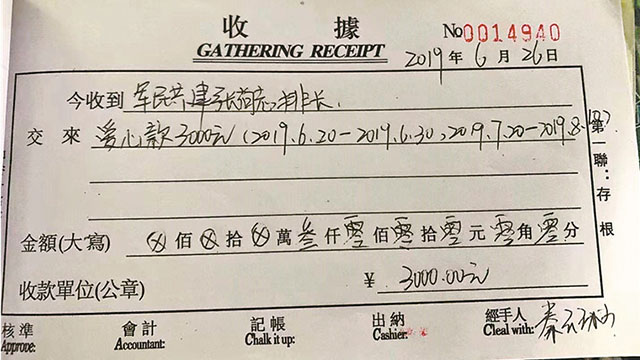 收據
GATHERING RECEIPT
No0014940
2019年6月26日
今收到 军民共建张 排长.
交來 爱心款3000元(2019.6.20-2019.6.30,2019.7.20-2019.8.
第一聯:存根
金額(大寫) ⊗佰⊗拾⊗萬叁仟零佰零拾零元零角零分
收款單位(公章) ¥ 3000.00元
核準 會計 記帳 出納 經手人
Approve: Accountant: Chalk it up: Cashier: Cleal with: 秦